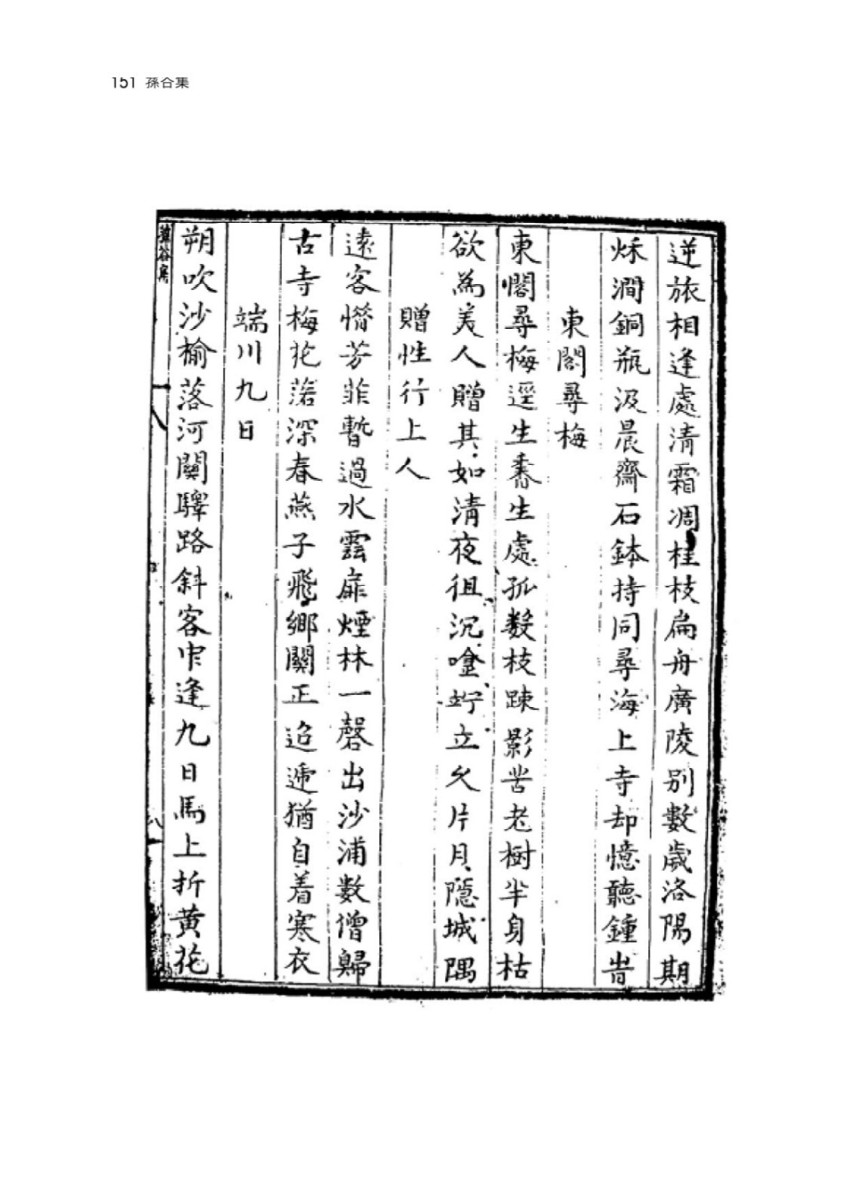 151 孫合集
逆旅相逢處清霜凋桂枝扁舟廣陵別數歲洛陽期
秌澗銅瓶汲晨齋石鉢持同尋海上寺却憶聽鍾旹
東閣尋梅
東閣尋梅逕生香生處孤數枝踈影苦老樹半身枯
欲為美人贈其如清夜徂沉唫竚立久片月隱城隅
贈性行上人
遠客憯芳菲暫過水雲扉煙林一磬出沙浦數僧歸
古寺梅花落深春燕子飛鄉關正迢遞猶自着寒衣
端川九日
朔吹沙榆落河關驛路斜客中逢九日馬上折黃花